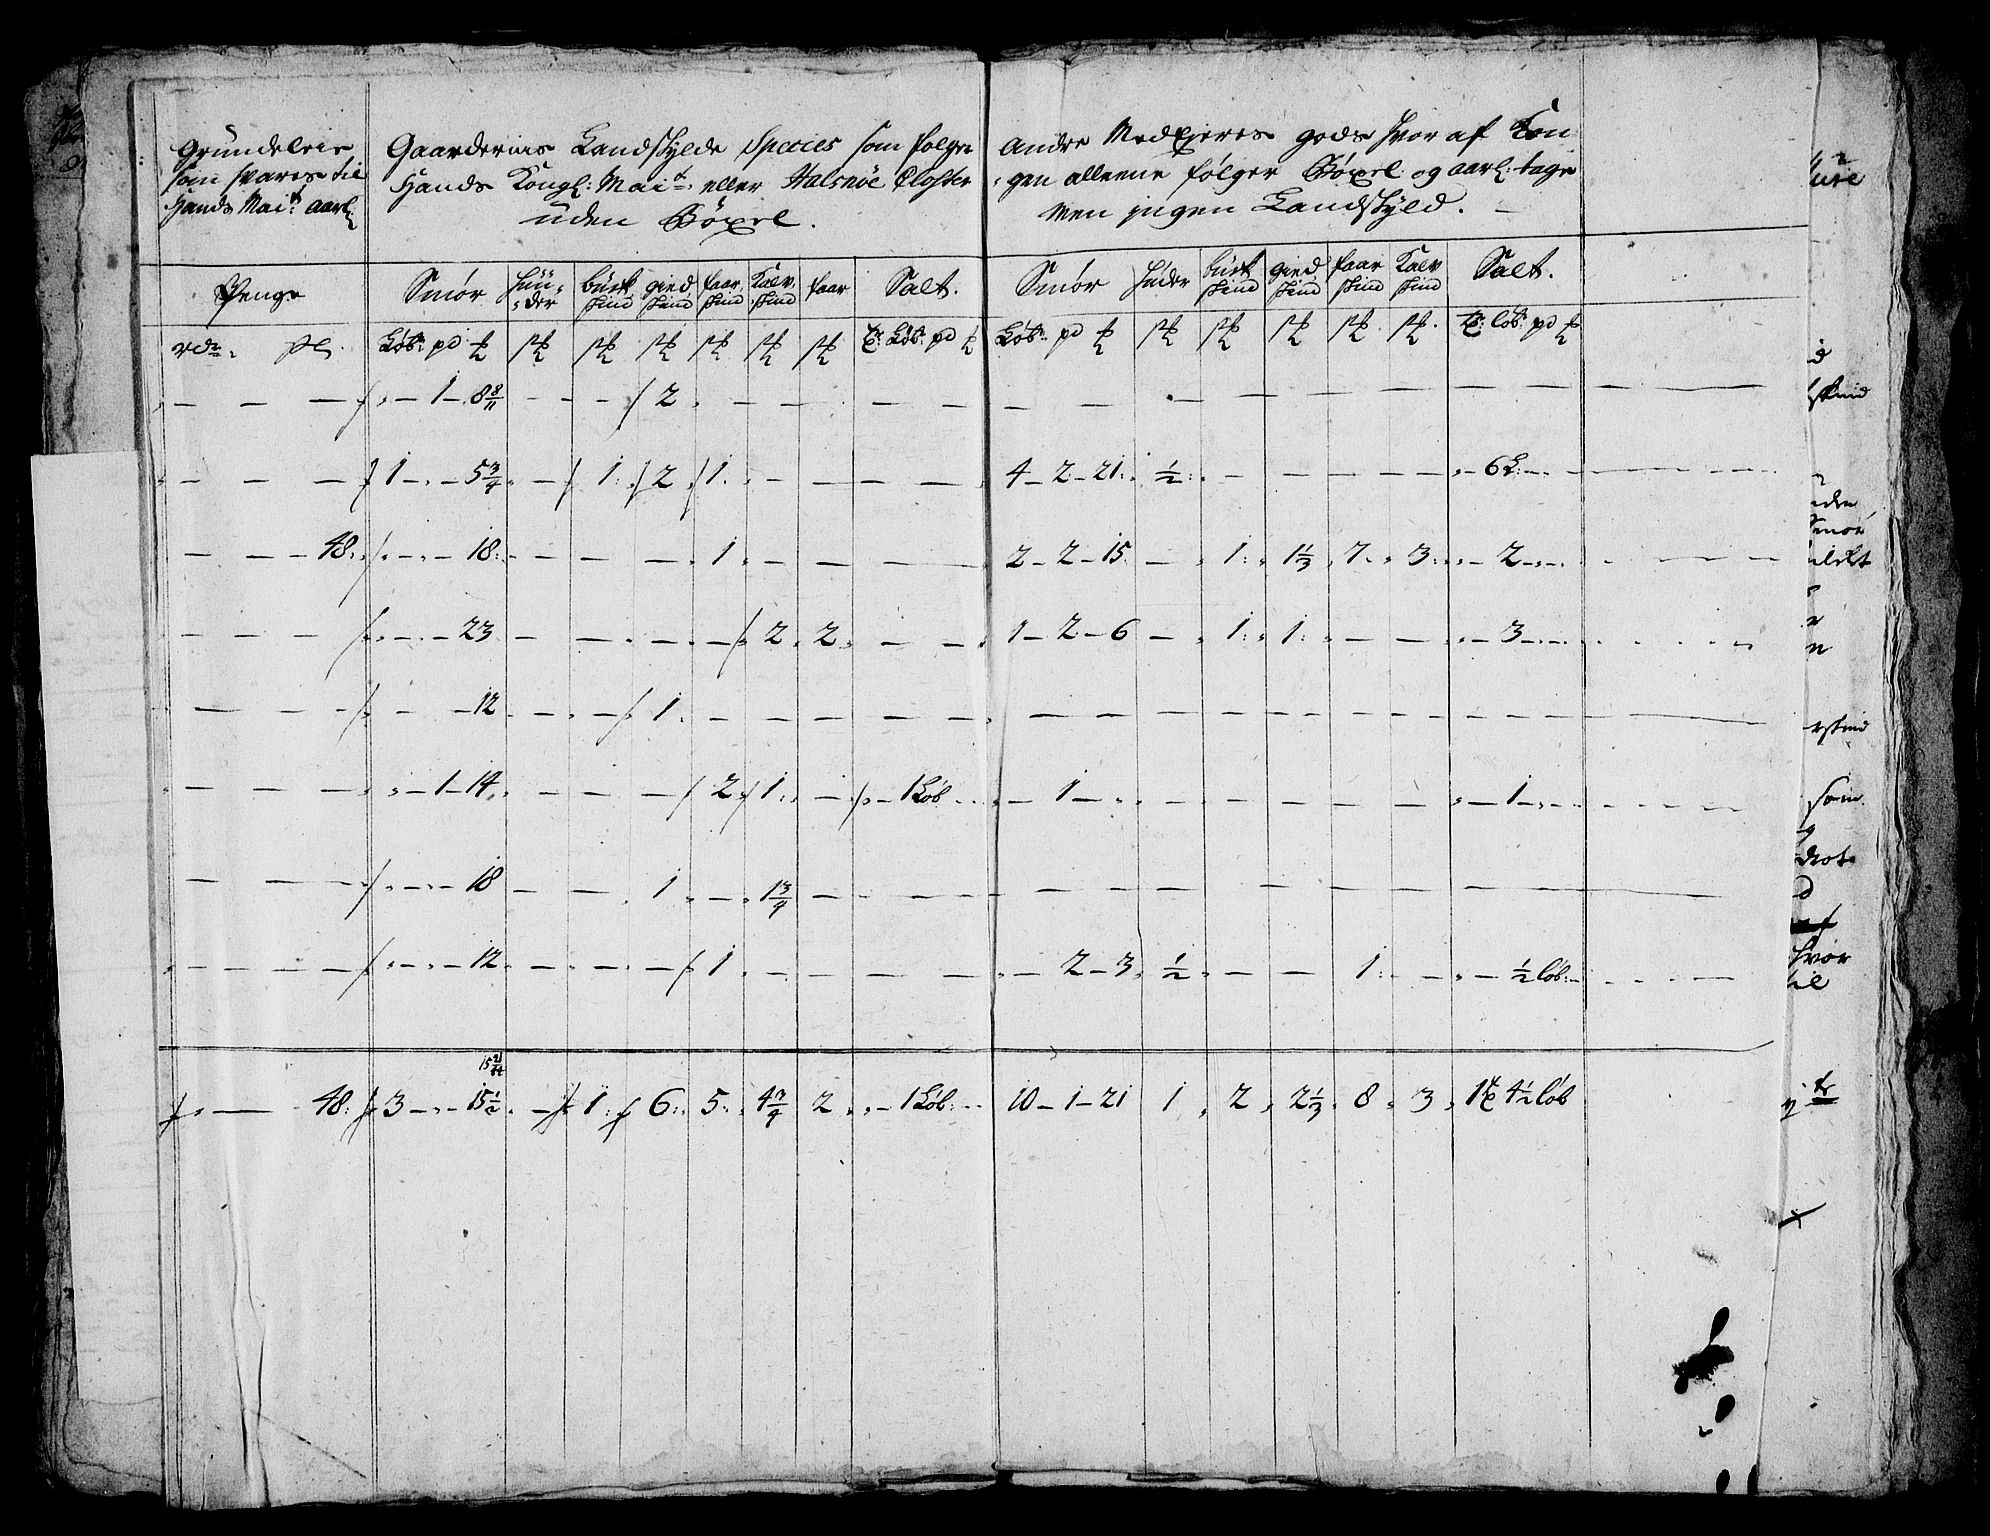 Grundeleie
som svares til
Hands Mai:t aarl:
Gaardernis Landskylde Species som følger
Hands Kongl: Mai:t eller Halsnöe Closter
uden Böxel.
Andre Medejeres gods hvor af Kon
gen alleene følger Böxel og aarl: tage
men ingen Landskyld.
Penge Smör Huuder buck skind gied skind faar skind Kalv skind faar Salt. Smör Huder buck skind gied skind faar skind Kalv skind Salt.
rdr: Löb: pd Löb: pd Löb: pd löb: pd
1 8 8/11 2
1 5 3/4 1 2 1 4 2 21 1/2 6
48 18 1 2 2 15 1 1 1/3 7 3 2
23 2 2 1 2 6 1 1 3
12 1
1 14 2 1 1 Löb 1 1
18 1 1 3/4
12 1 2 3 1/2 1 1/2 löb:
15
48 3 15 1/2 1 6 5 4 3/4 2 1 Löb: 10 1 21 1 2 2 1/3 8 3 1 4 1/2 löb
skind
Smör
som
hvor
til